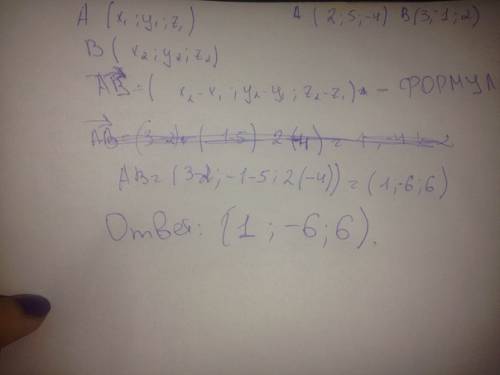 A (x₁; y₁; z₁) A (2; 5; -4) B(3; -1; 2)
B (x₂; y₂; z₂)
AB = (x₂-x₁; y₂-y₁; z₂-z₁) - ФОРМУЛА
AB = (3-2; -1-5; 2(-4)) = (1; -6; 6)
Ответ: (1; -6; 6).